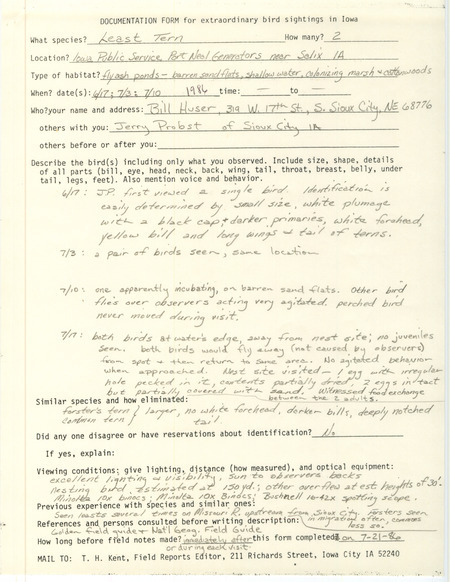 DOCUMENTATION FORM for extraordinary bird sightings in Iowa
What species? Least Tern How many? 2
Location? Iowa Public Service Port Neal Generators near Salix IA
Type of habitat? flyash ponds - barren sandflats, shallow water, colonizing marsh & cottonwoods
When? date(s): 6/17; 7/3; 7/10 1986 time: — to —
Who? your name and address: Bill Huser, 319 W. 17th St., S. Sioux City, NE 68776
others with you: Jerry Probst of Sioux City IA
others before or after you:
Describe the bird(s) including only what you observed. Include size, shape, details
of all parts (bill, eye, head, neck, back, wing, tail, throat, breast, belly, under
tail, legs, feet). Also mention voice and behavior.
6/17: J.P. first viewed a single bird. Identification is
easily determined by small size, white plumage
with a black cap & darker primaries, white forehead,
yellow bill and long wings & tail of terns.
7/3: a pair of birds seen, same location
7/10: one apparently incubating, on barren sand flats. Other bird
flies over observers acting very agitated. perched bird
never moved during visit.
7/17: both birds at water's edge, away from nest site; no juveniles
seen. both birds would fly away (not caused by observers)
from spot & then return to same area. No agitated behavior
when approached. Nest site visited - 1 egg with irregular
hole pecked in it, contents partially dried, 2 eggs intact
but partially covered with sand. Witnessed food exchange
between the 2 adults.
Similar species and how eliminated:
forster's tern } larger, no white forehead, darker bills, deeply notched
common tern } tail.
Did any one disagree or have reservations about identification? No
If yes, explain:
Viewing conditions: give lighting, distance (how measured), and optical equipment:
excellent lighting & visibility, sun to observers backs
nesting bird, estimated at 150 yd.; other overflew at est. heights of 30'.
Minolta 10x binocs; Minolta 10x Binocs; Bushnell 16-42x spotting scope.
Previous experience with species and similar ones:
Seen leasts several times on Missouri R. upstream from Sioux City. Forsters seen
in migration often, commons
less so.
References and persons consulted before writing description:
Golden field guide & Nat'l Geog. Field Guide
How long before field notes made? immediately after this form completed? on 7-21-86
or during each visit
MAIL TO: T. H. Kent, Field Reports Editor, 211 Richards Street, Iowa City IA 52240